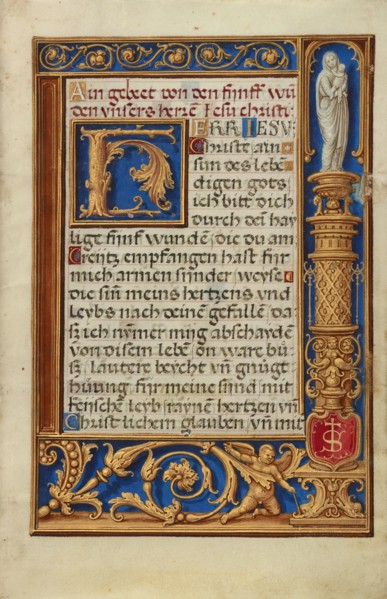 Ain gebeet von den fünff wū
den vnsers herrē Jesu christi
HERR IESV
Christe ain
sun des lebē
digen gots
ich bitt dich
durch den hay
lige fünf wundē, die du am
Creütz empfangen hast für
mich armen sünder, weyse
die sin meins hertzens vnd
leybs nach deinē gefallē, da
sz ich nymer müg abschaydē
von disem lebē on ware bů
sz, lautere beycht vn̄ gnůgt
hüung für meine sünd mit
kenschē leyb, raynē hertzen vn̄
Christlichem glauben, vn̄ mit